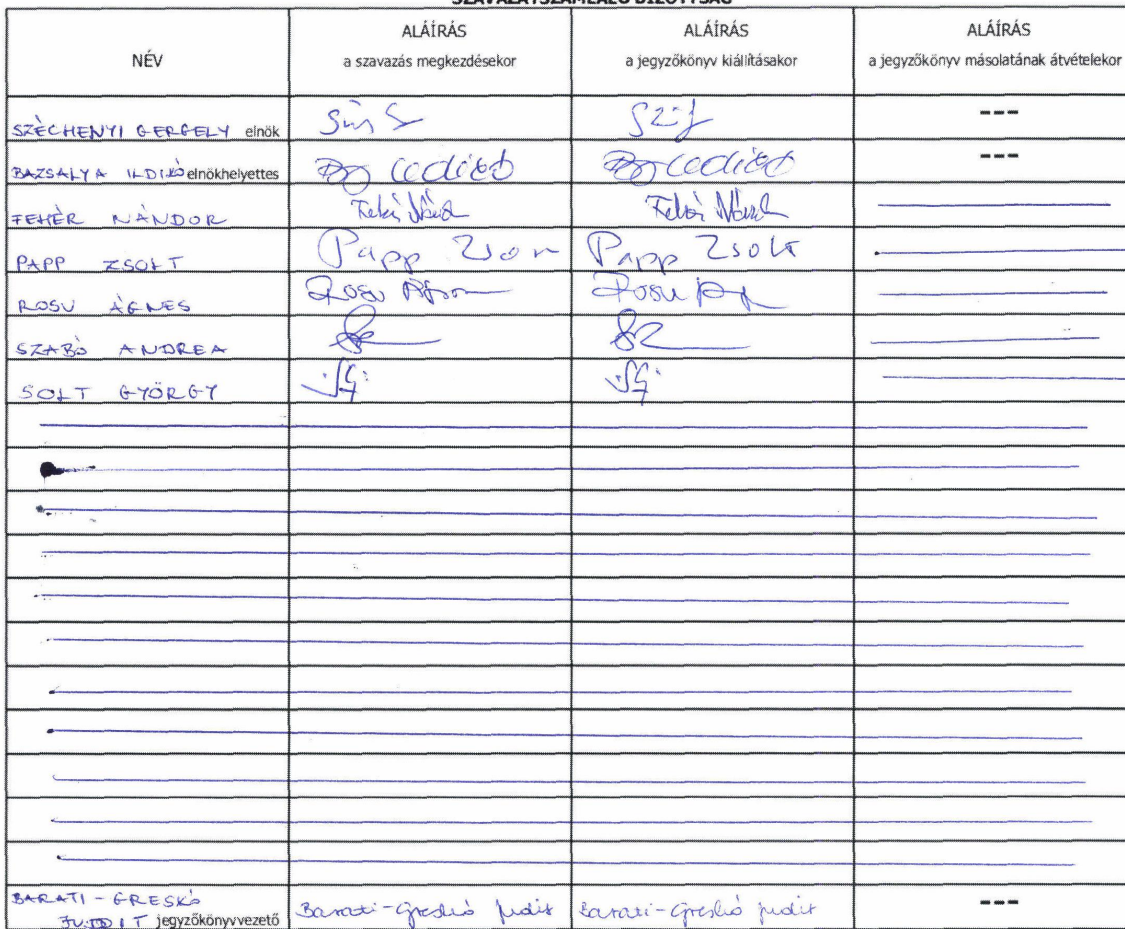 SZAVAZATSZÁMLÁLÓ BIZOTTSÁG
NÉV
ALÁÍRÁS
a szavazás megkezdésekor
ALÁÍRÁS
a jegyzőkönyv kiállításakor
ALÁÍRÁS
a jegyzőkönyv másolatának átvételekor
SZÉCHENYI GERGELY elnök
---
BAZSALYA ILDIKÓ elnökhelyettes
---
FEHÉR NÁNDOR Fehér Nándor Fehér Nándor
PAPP ZSOLT Papp Zsolt Papp Zsolt
ROSU ÁGNES Rosu Rosu
SZABÓ ANDREA
SOLT GYÖRGY
BARATI-GRESKÓ
JUDIT jegyzőkönyvvezető Barati-Greskó Judit Barati-Greskó Judit ---